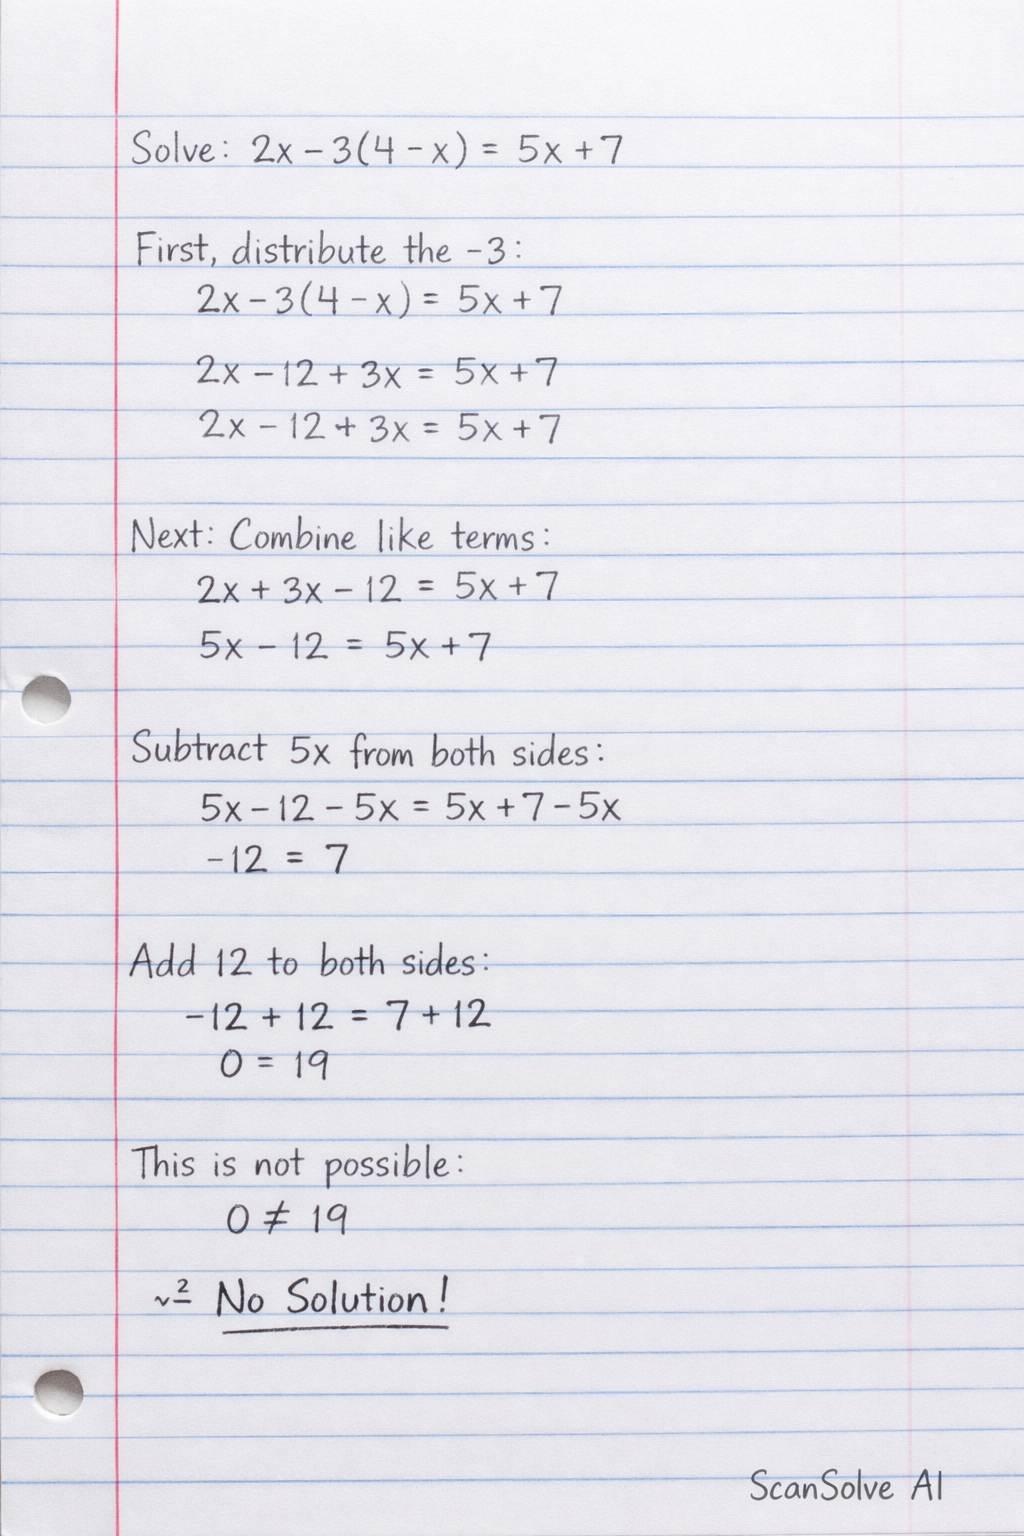 Solve: 2x - 3(4 - x) = 5x + 7
First, distribute the -3:
2x - 3(4 - x) = 5x + 7
2x - 12 + 3x = 5x + 7
2x - 12 + 3x = 5x + 7
Next: Combine like terms:
2x + 3x - 12 = 5x + 7
5x - 12 = 5x + 7
Subtract 5x from both sides:
5x - 12 - 5x = 5x + 7 - 5x
-12 = 7
Add 12 to both sides:
-12 + 12 = 7 + 12
0 = 19
This is not possible:
0 ≠ 19
No Solution!
ScanSolve AI